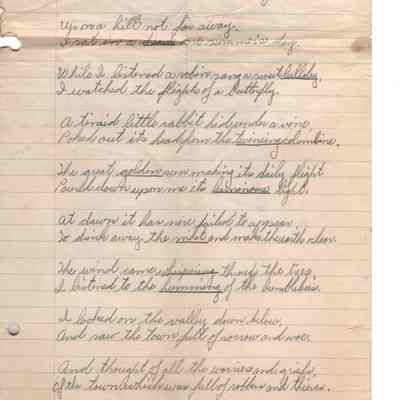 Up on a hill not far away.
I sat on a summer's day.
While I listened a robin sang a sweet lullaby,
I watched the flights of a butterfly.
A timid little rabbit hid under a vine,
Poked out its head from the twining columbine.
The great golden sun making its daily flight
Pours down upon me its luminous light.
At dawn it has never failed to appear,
To drink away the mist and make the earth clear.
The wind came whispering through the trees,
I listened to the humming of the bumblebees.
I looked on the valley down below.
And saw the town full of sorrow and woe.
And thought of all the worries and griefs,
Of the town which was full of robbers and thieves.